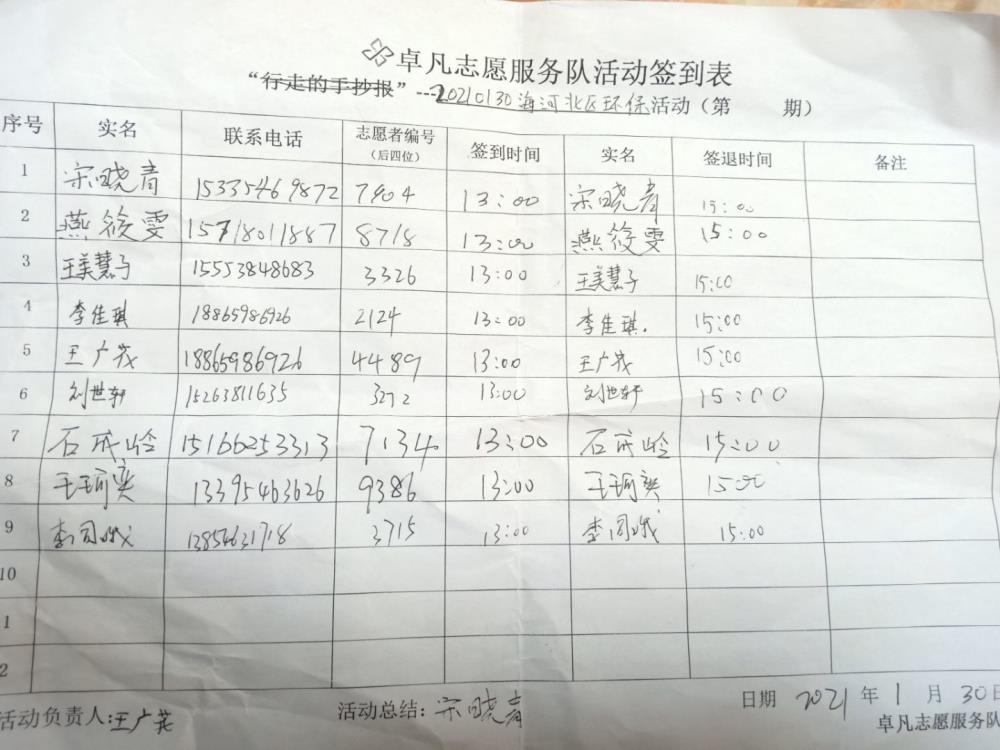 卓凡志愿服务队活动签到表
“行走的手抄报”---20210130海河北区环保活动（第 期）
序号 实名 联系电话 志愿者编号（后四位） 签到时间 实名 签退时间 备注
1 宋晓青 15335469872 7904 13:00 宋晓青 15:00
2 燕筱雯 15718011887 8718 13:00 燕筱雯 15:00
3 王美慧子 15553848683 3326 13:00 王美慧子 15:00
4 李佳琪 18865986926 2124 13:00 李佳琪. 15:00
5 王广茂 18865986926 4489 13:00 王广茂 15:00
6 刘世轩 15263811635 3272 13:00 刘世轩 15:00
7 石成岭 15166253313 7134 13:00 石成岭 15:00
8 王珂奕 13395463626 9386 13:00 王珂奕 1500
9 李同 13854631718 3715 13:00 李同 15:00
10
1
2
日期 2021 年 1 月 30日
活动负责人:王广茂 活动总结: 宋晓青
卓凡志愿服务队